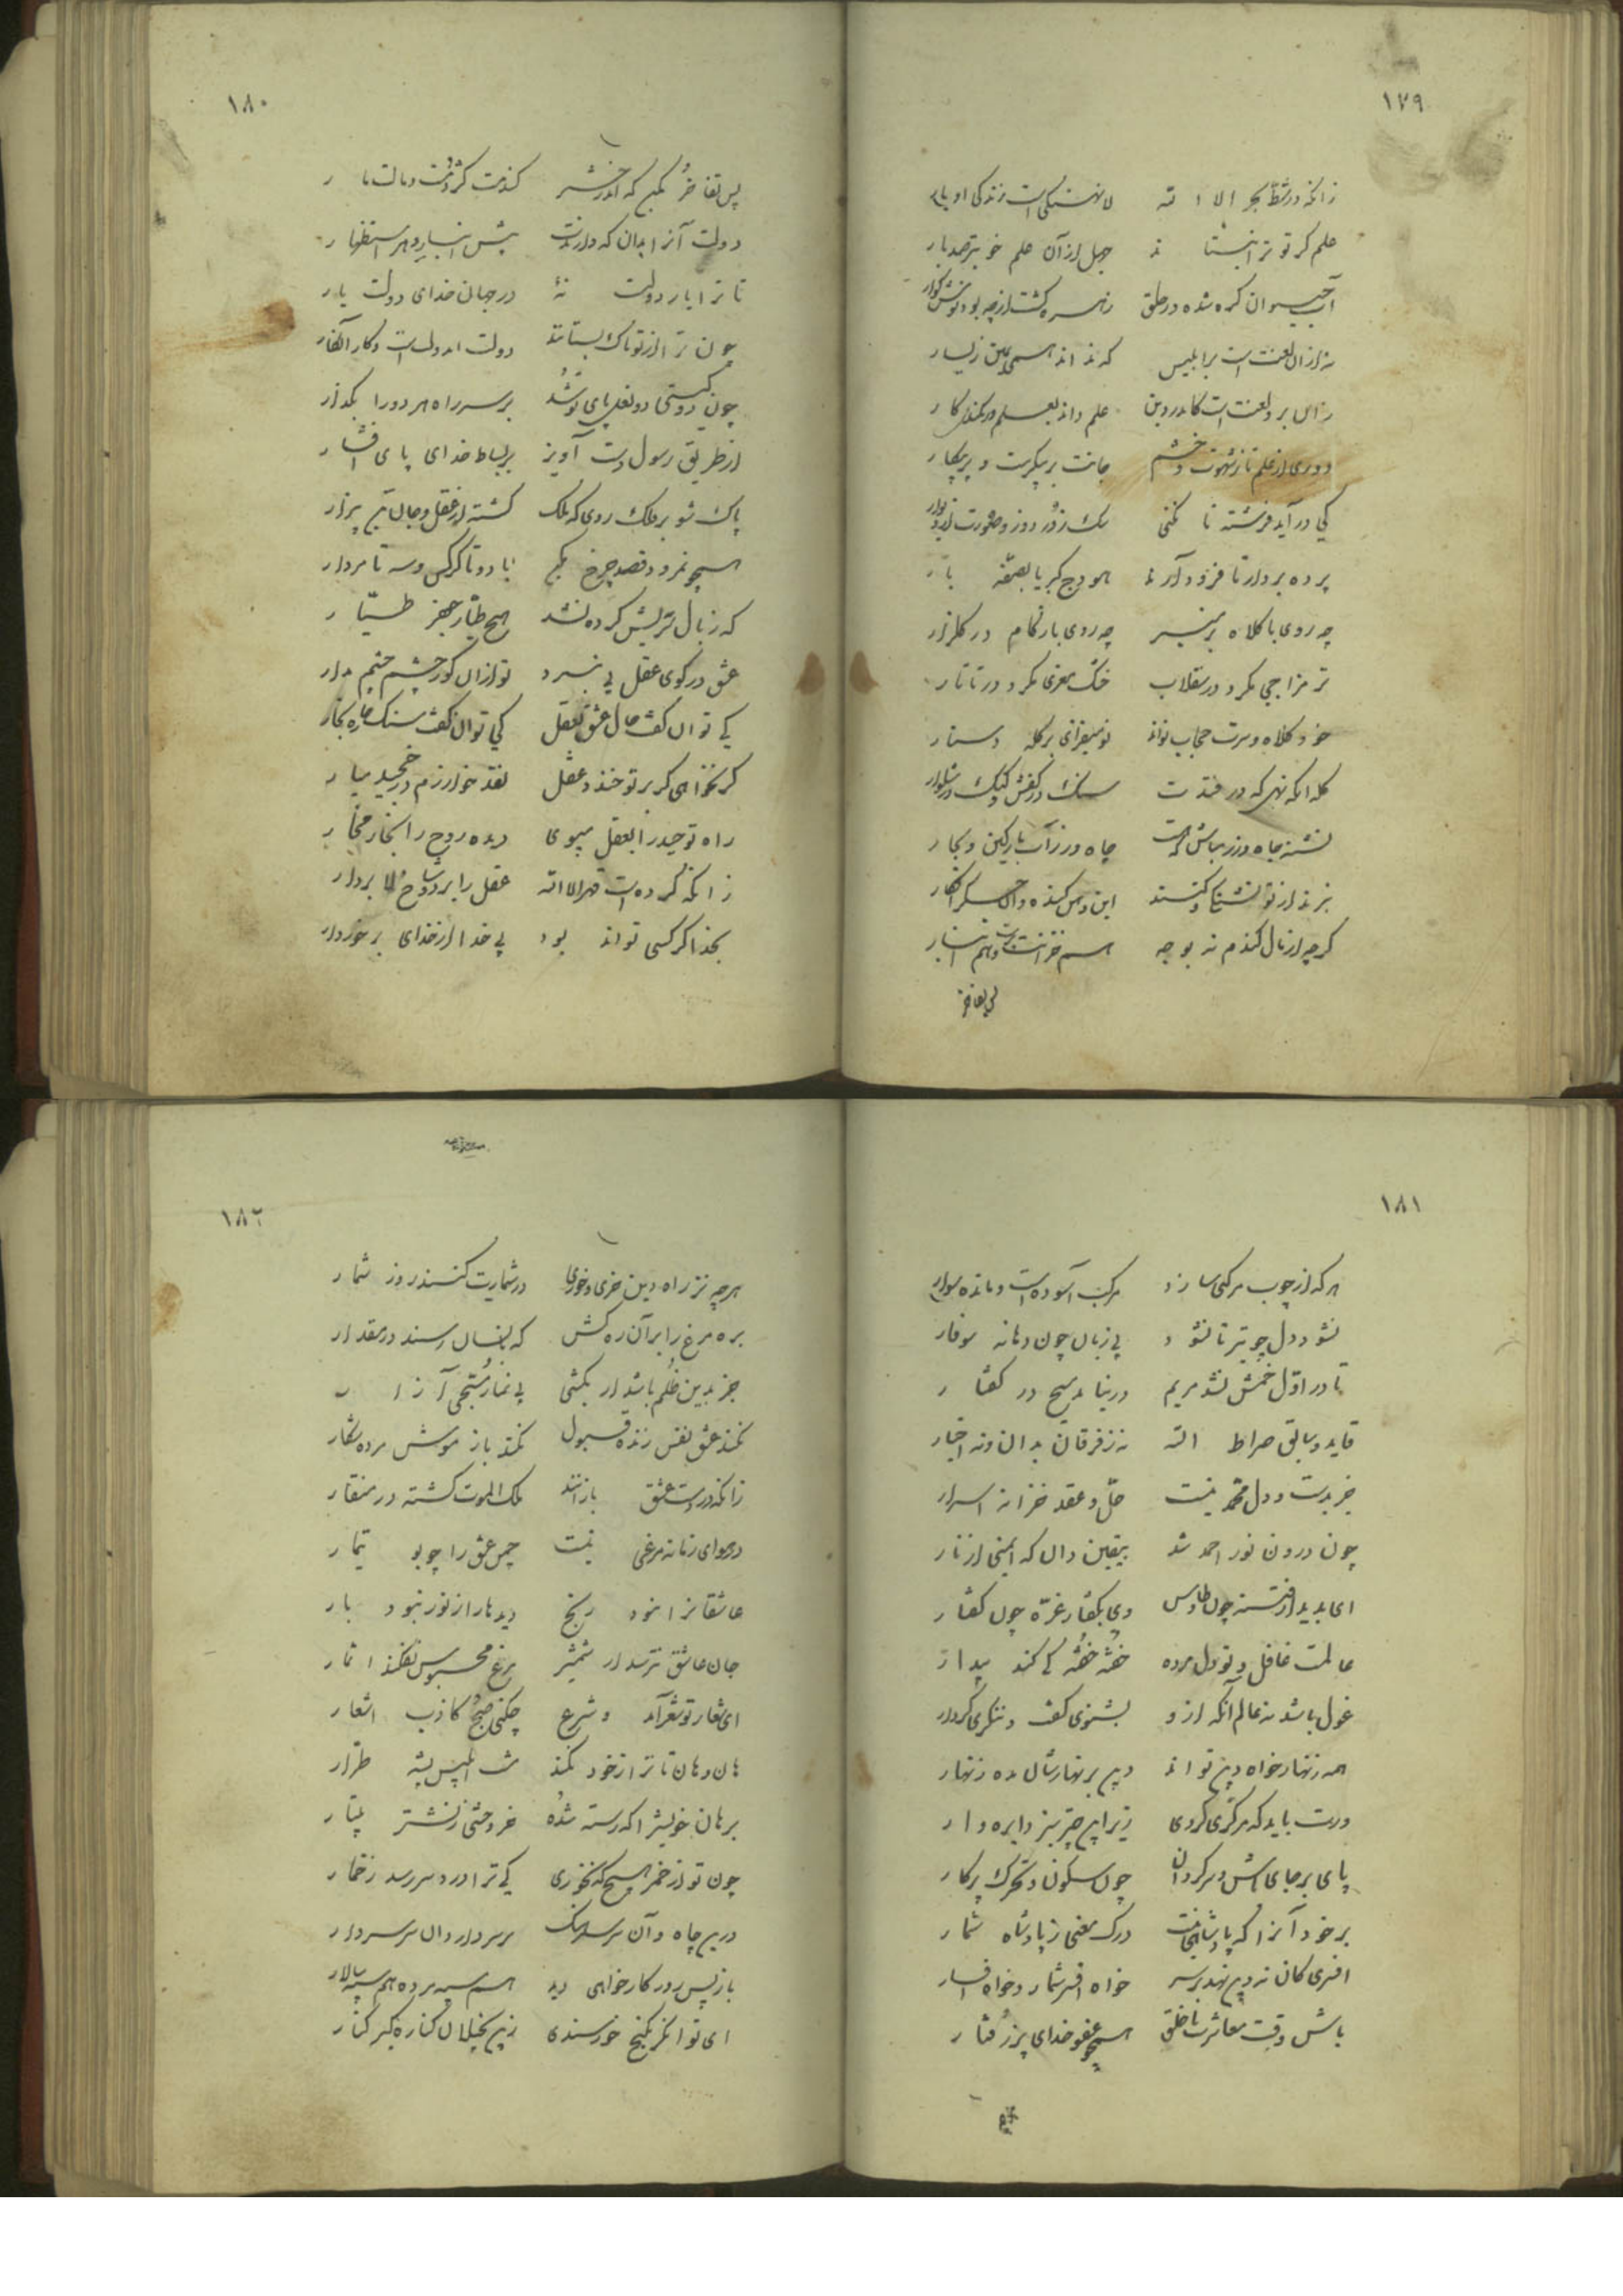 ١٧٩
زانکه در شط بحر الا الله لا نهنگی است زندگی اوبار
علم کز تو ترا بنستاند جهل از آن علم خوبتر صد بار
آب حیوان گره شده در حلق زهر گشت ارچه بود نوش گوار
نه از آن لعنت است بر ابلیس که نداند همی یمین ز یسار
زان برو لعنت است کاندر دین علم داند بعلم نکند کار
دوری از علم تا ز شهوت و خشم جانت پر پیکرست و پر پیکار
کی درآید فرشته تا نکنی سگ ز در دور و صورت از دیوار
پرده بردار تا فرود آرند هودج کبریا بصفه بار
چه روی با کلاه بر منبر چه روی با زکام در گلزار
تر مزاجی مگرد در سقلاب خشک مغزی مگرد در تاتار
خود کلاه و سرت حجاب تواند تو میفزای بر کله دستار
کله آنگه نهی که در فتدت سنگ در کفش و کیک در شلوار
تشنه جاه و زر مباش که هست جاه و زر آب پارگین و بحار
بنزند از تو تشنگی و کنند این و آن
گرچه از مال گندم نه بوجه هم خزانت پرست و هم انبار
پس تفاخر
١٨٠
پس تفاخر مکن که اندر حشر گندمت کژدمست و مالت مار
دولت آنرا بدان که دارندت بیش از انبار و بهر استظهار
تا ترا یار دولتست نهٔ در جهان خدای دولت یار
چون ترا از تو پاک بستانند دولت آن دولت است و کار آن کار
چون دو گیتی دو نعل پای تو شد بر سر راه هر دو را بگذار
از طریق رسول دست آویز بر بساط خدای پای افشار
پاک شو بر فلک روی که ملک گشته از عقل و جان تن بیزار
همچو نمرود قصد چرخ مکن با دو تا کرکس و سه تا مردار
که ز بال تریش کرده نشد هیچ طرار جعفر طیار
عشق در کوی عقل بی نبرد تو از آن کور چشم چشم مدار
کی توان گفت حال عشق بعقل کی توان سفت سنگ خاره بخار
گر نخواهی که بر تو خندد عقل نقد خوارزم در خجند میار
راه توحید را بعقل مپوی دیده روح را بخار مخار
زانکه کرده است قهر الا الله عقل را بر دو شاخ لا بردار
بخدا گر کسی تواند بود بی خدا از خدای برخوردار
١٨١
هر که از چوب مرکبی سازد مرکب آسوده است و مانده سوار
نشود دل چو تیر تا نشود بی زبان چون دهانه سوفار
تا در اول خمش نشد مریم در نیامد مسیح در گفتار
قاید و سایق صراط الله به ز قرآن مدان و نه اخبار
جز بدست و دل محمد نیست حل و عقد خزانه اسرار
چون درون نور احمد شد بیقین دان که ایمنی از نار
ای بدیدار فتنه چون طاوس وی بگفتار غره چون کفتار
عالمت غافل و تو دل مرده خفته خفته کی کند بیدار
غول باشد نه عالم آنکه ازو بشنوی گفت و ننگری کردار
همه زنهار خواه دین تواند دین بزنهارشان مده زنهار
ورت باید که مرکزی گردی زیر این چتر نیز دایره وار
پای بر جای باش و سرگردان چون سکون و تحرک پرگار
بر خود آنرا که پادشاهی نیست بر گیاهیش پادشاه شمار
افسری کان نه دین نهد بر سر خواه افسر شمار و خواه افسار
باش وقت معاشرت با خلق همچو عفو خدای پذرفتار
هرچه
١٨٢
هرچه نز راه دین خری و خوری در شمارت کنند روز شمار
بره و مرغ را بدان ره کش که بانسان رسند در مقدار
جز بدین ظلم باشد ار بکشی بی نمازی مسبحی را زار
نکند عشق نفس زنده قبول نکند باز موش مرده شکار
زانکه در دست عشق بازانند ملک الموت گشته در منقار
در هوای زمانه مرغی نیست چمن عشق را چو بو تیمار
عاشقانرا بود رنج دیدها را ز نور نبود بار
جان عاشق نترسد از شمشیر مرغ محبوس نشکهد ز اشجار
ای شعار تو شعر آمد و شرع چکنی صبح کاذب اشعار
هان و هان تا ترا چو خود نکند مشتی ابلیس پیشه طرار
برهان خویشرا که رسته شده خر وحشی ز نشتر بیطار
چون تو از خمر هیچکس نخوری کی ترا درد سر رسد ز خمار
درین چاه و آن سرسرهنگ بر سر دار دان سر سردار
باز پس رو کار خواهی دید هم سپه مرده هم سپه سالار
ای توانگر بکنج خرسندی زین بخیلان کناره گیر کنار